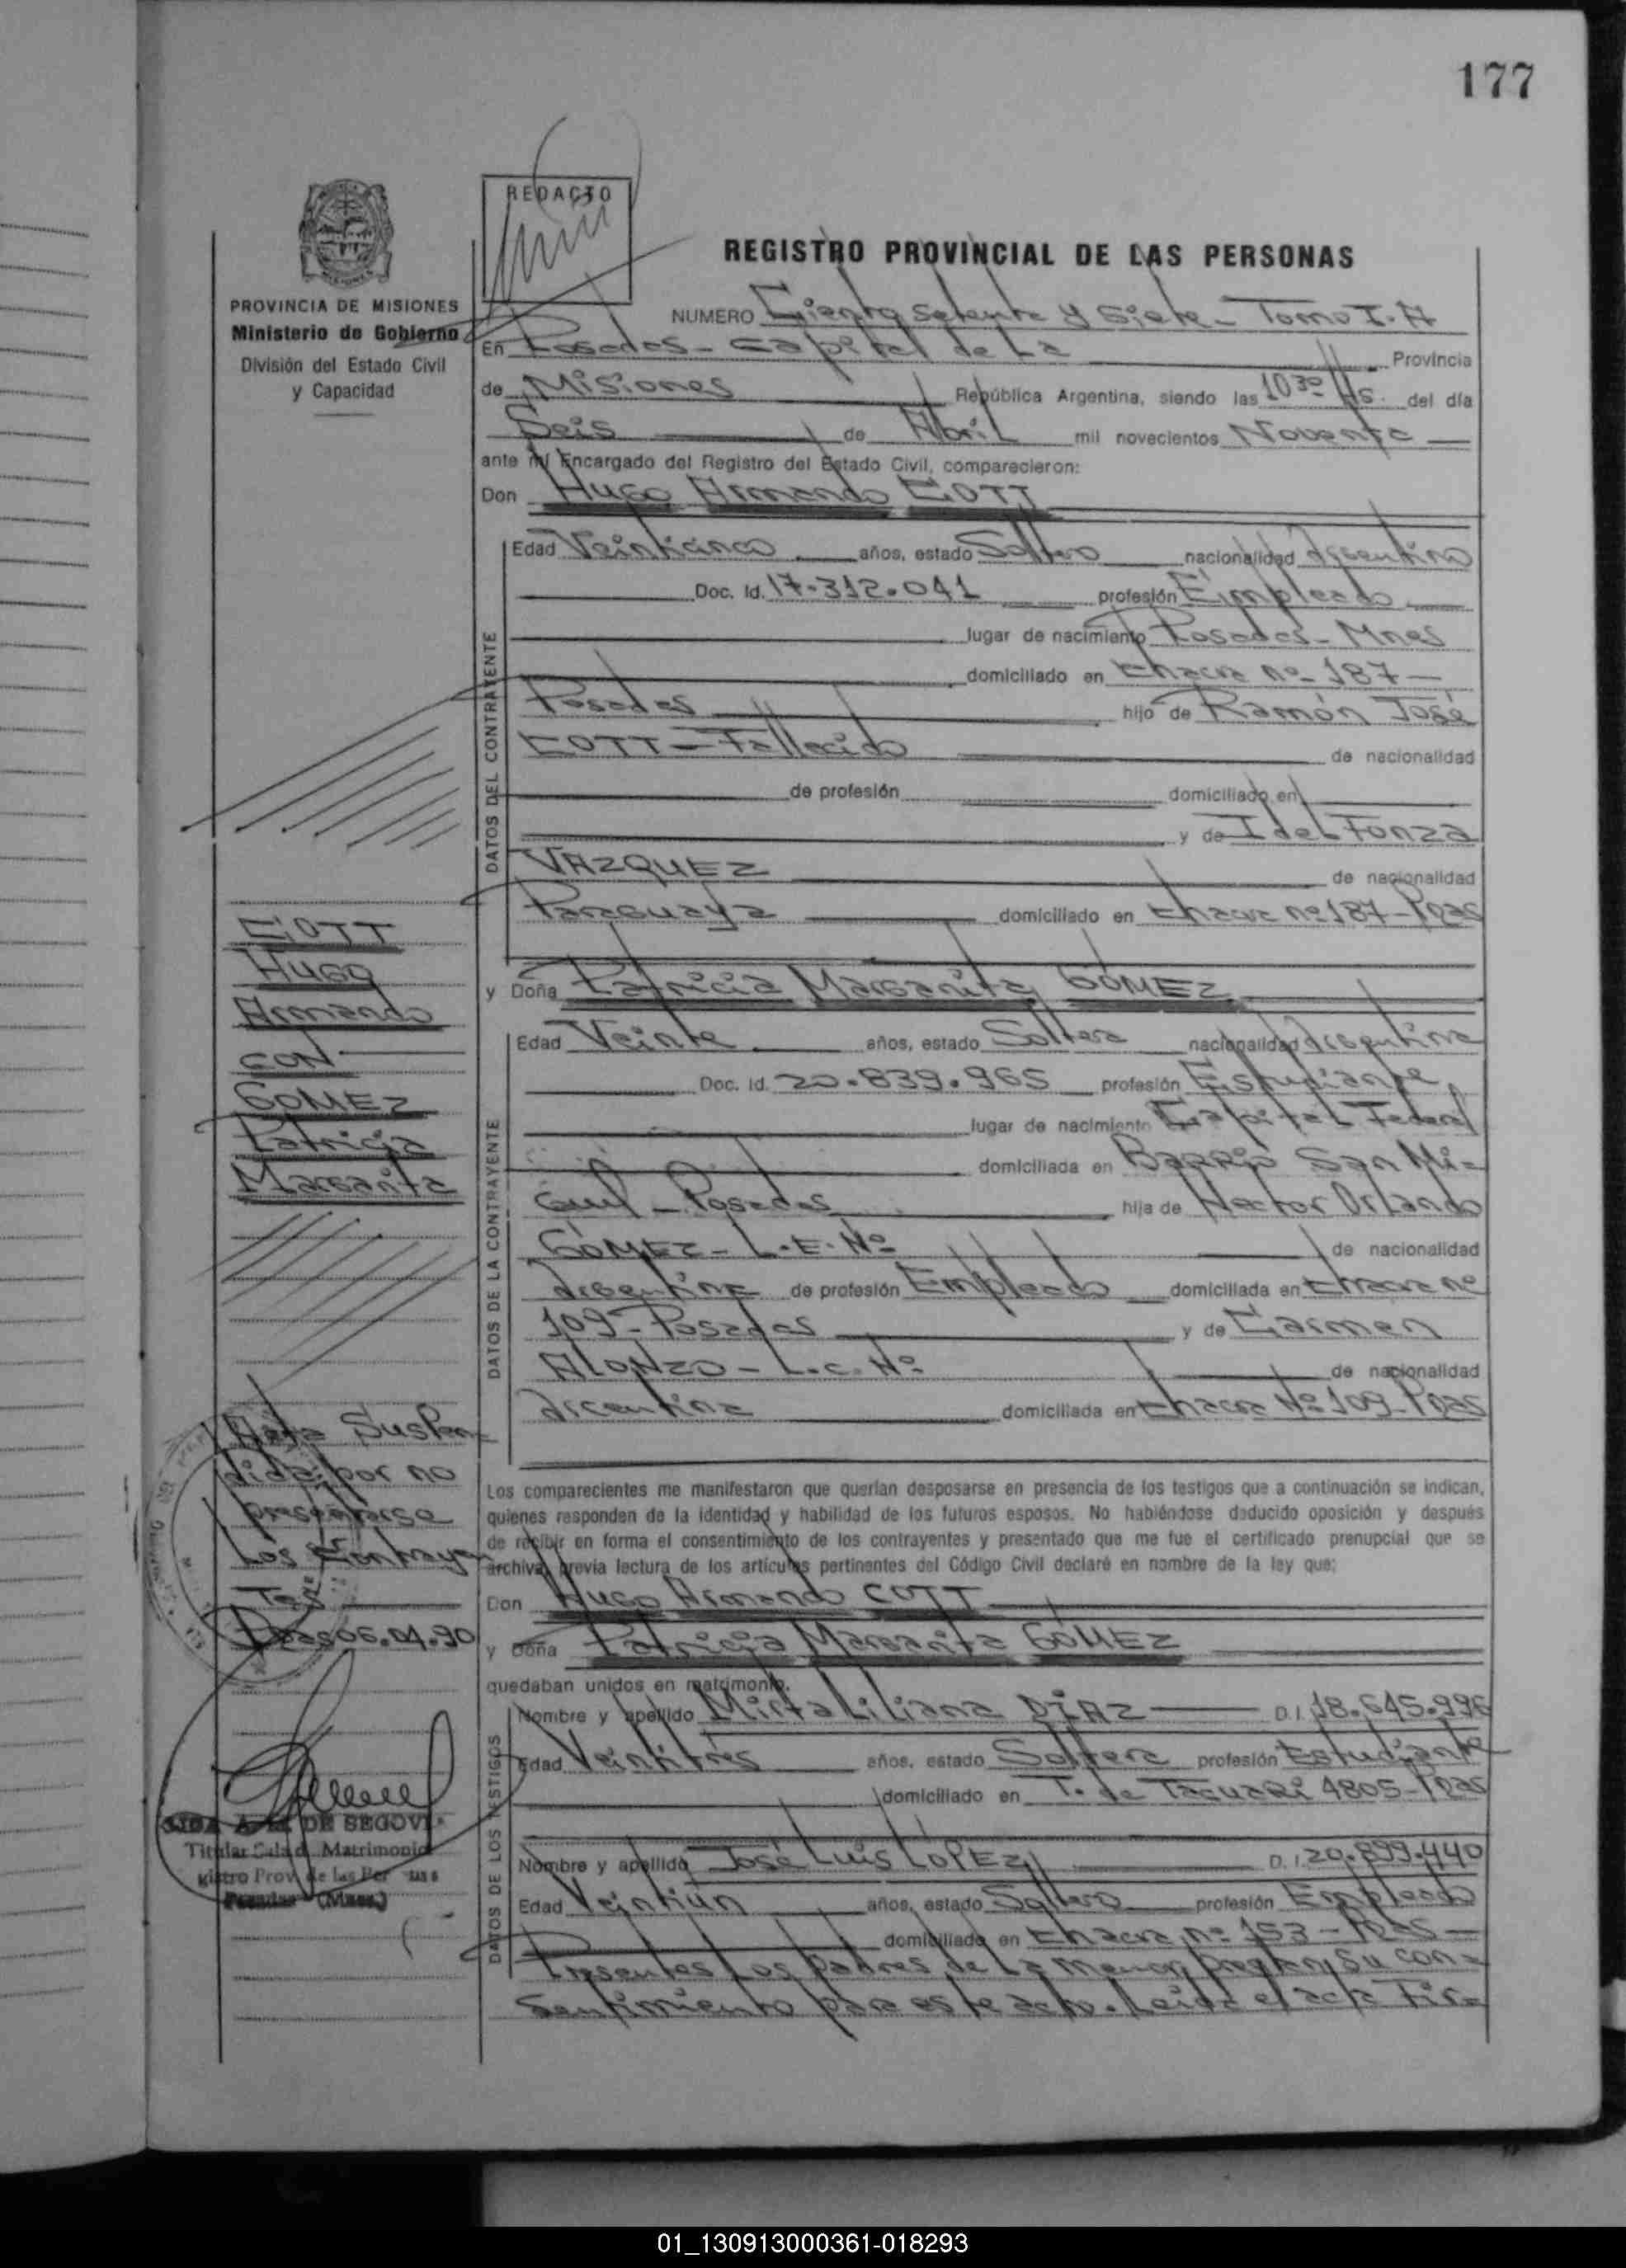 177
REDACTO
REGISTRO PROVINCIAL DE LAS PERSONAS
PROVINCIA DE MISIONES
Ministerio de Gobierno
División del Estado Civil
y Capacidad
NUMERO Ciento Setenta y Siete - Tomo I. A
En Posadas - Capital de La Provincia
de Misiones República Argentina, siendo las 10³⁰ Hs. del día
Seis de Abril mil novecientos Noventa
ante mí Encargado del Registro del Estado Civil, comparecieron:
Don Hugo Armando COTT
DATOS DEL CONTRAYENTE
Edad Veinticinco años, estado Soltero nacionalidad Argentino
Doc. Id. 17.312.041 profesión Empleado
lugar de nacimiento Posadas - Mnes
domiciliado en Chacra nº 187 -
Posadas hijo de Ramón José
COTT - Fallecido de nacionalidad
de profesión domiciliado en
y de IdelFonza
VAZQUEZ de nacionalidad
Paraguaya domiciliado en Chacra nº 187 - Pdas
y Doña Patricia Margarita GOMEZ
DATOS DE LA CONTRAYENTE
Edad Veinte años, estado Soltera nacionalidad Argentina
Doc. Id. 20.839.965 profesión Estudiante
lugar de nacimiento Capital Federal
domiciliada en Barrio San Mi=
guel - Posadas hija de Hector Orlando
GOMEZ - L.E. Nº de nacionalidad
Argentina de profesión Empleado domiciliada en Chacra nº
109 - Posadas y de Carmen
ALONZO - L.C. Nº de nacionalidad
Argentina domiciliada en Chacra Nº 109 - Pdas
Los comparecientes me manifestaron que querían desposarse en presencia de los testigos que a continuación se indican,
quienes responden de la identidad y habilidad de los futuros esposos. No habiéndose deducido oposición y después
de recibir en forma el consentimiento de los contrayentes y presentado que me fue el certificado prenupcial que se
archiva, previa lectura de los artículos pertinentes del Código Civil declaré en nombre de la ley que:
Don Hugo Armando COTT
y Doña Patricia Margarita GOMEZ
quedaban unidos en matrimonio.
DATOS DE LOS TESTIGOS
Nombre y apellido Mirta Liliana DÍAZ D.I. 18.645.996
Edad Veintitrés años, estado Soltera profesión Estudiante
domiciliado en T. de Tacuari 4805 - Pdas
Nombre y apellido José Luis LOPEZ D.I. 20.899.440
Edad Veintiún años, estado Soltero profesión Empleado
domiciliado en Chacra nº 153 - Pdas -
Presentes Los padres de La menor, prestan su con=
sentimiento para este acto. Leída el acta Fir=
COTT
Hugo
Armando
CON
GOMEZ
Patricia
Margarita
Acta Suspen
dida, por no
presentarse
Los Contrayen
Tes
Pdas 06.04.90
DE SEGOVI
Titular Sala d Matrimonio
gistro Prov de las Per nas
Posadas (Mnes.)
01_130913000361-018293